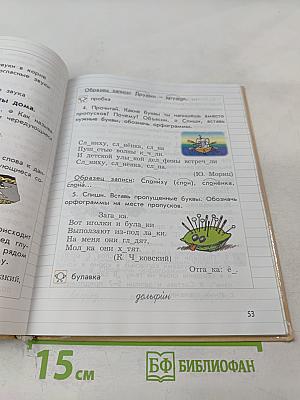 вуки в корне
гласные звуки
звука
ты дома.
а. Как названы
чередующиеся
слова к дан
ующиеся со
роисходит
ед глу-
рядом
Образец записи: Друзьями – друзья.
пробка
4. Прочитай. Какие буквы ты напишешь вместо
пропусков? Почему? Объясни.
Спиши, вставь
нужные буквы, обозначь орфограммы.
Сл_ниху, сл_нёнка, сл_на
Пуш_стые волны к_ч_ли.
И детской улы_кой дел_фины встреч_ли
Сл_ниху, сл_нёнка, сл_на.
(Ю. Мориц)
Образец записи: Слониху (слон), слонёнка,
слона...
5. Спиши. Вставь пропущенные буквы. Обозначь
орфограммы на месте пропусков.
Зага_ка.
Вот иголки и була_ки
Выползают из-под ла_ки.
На меня они гл_дят,
Мол_ка они х_тят.
(К. Ч_ковский)
Отга_ка: ё_.
булавка
дельфин
53
15 см
БФ БИБЛИОФАН